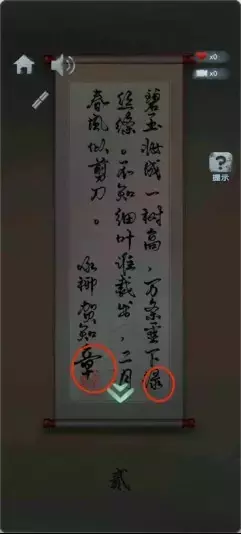 x0
x0
?
提示
碧玉妆成一树高，万条垂下绿
丝绦。不知细叶谁裁出，二月
春风似剪刀。
咏柳 贺知章
贰